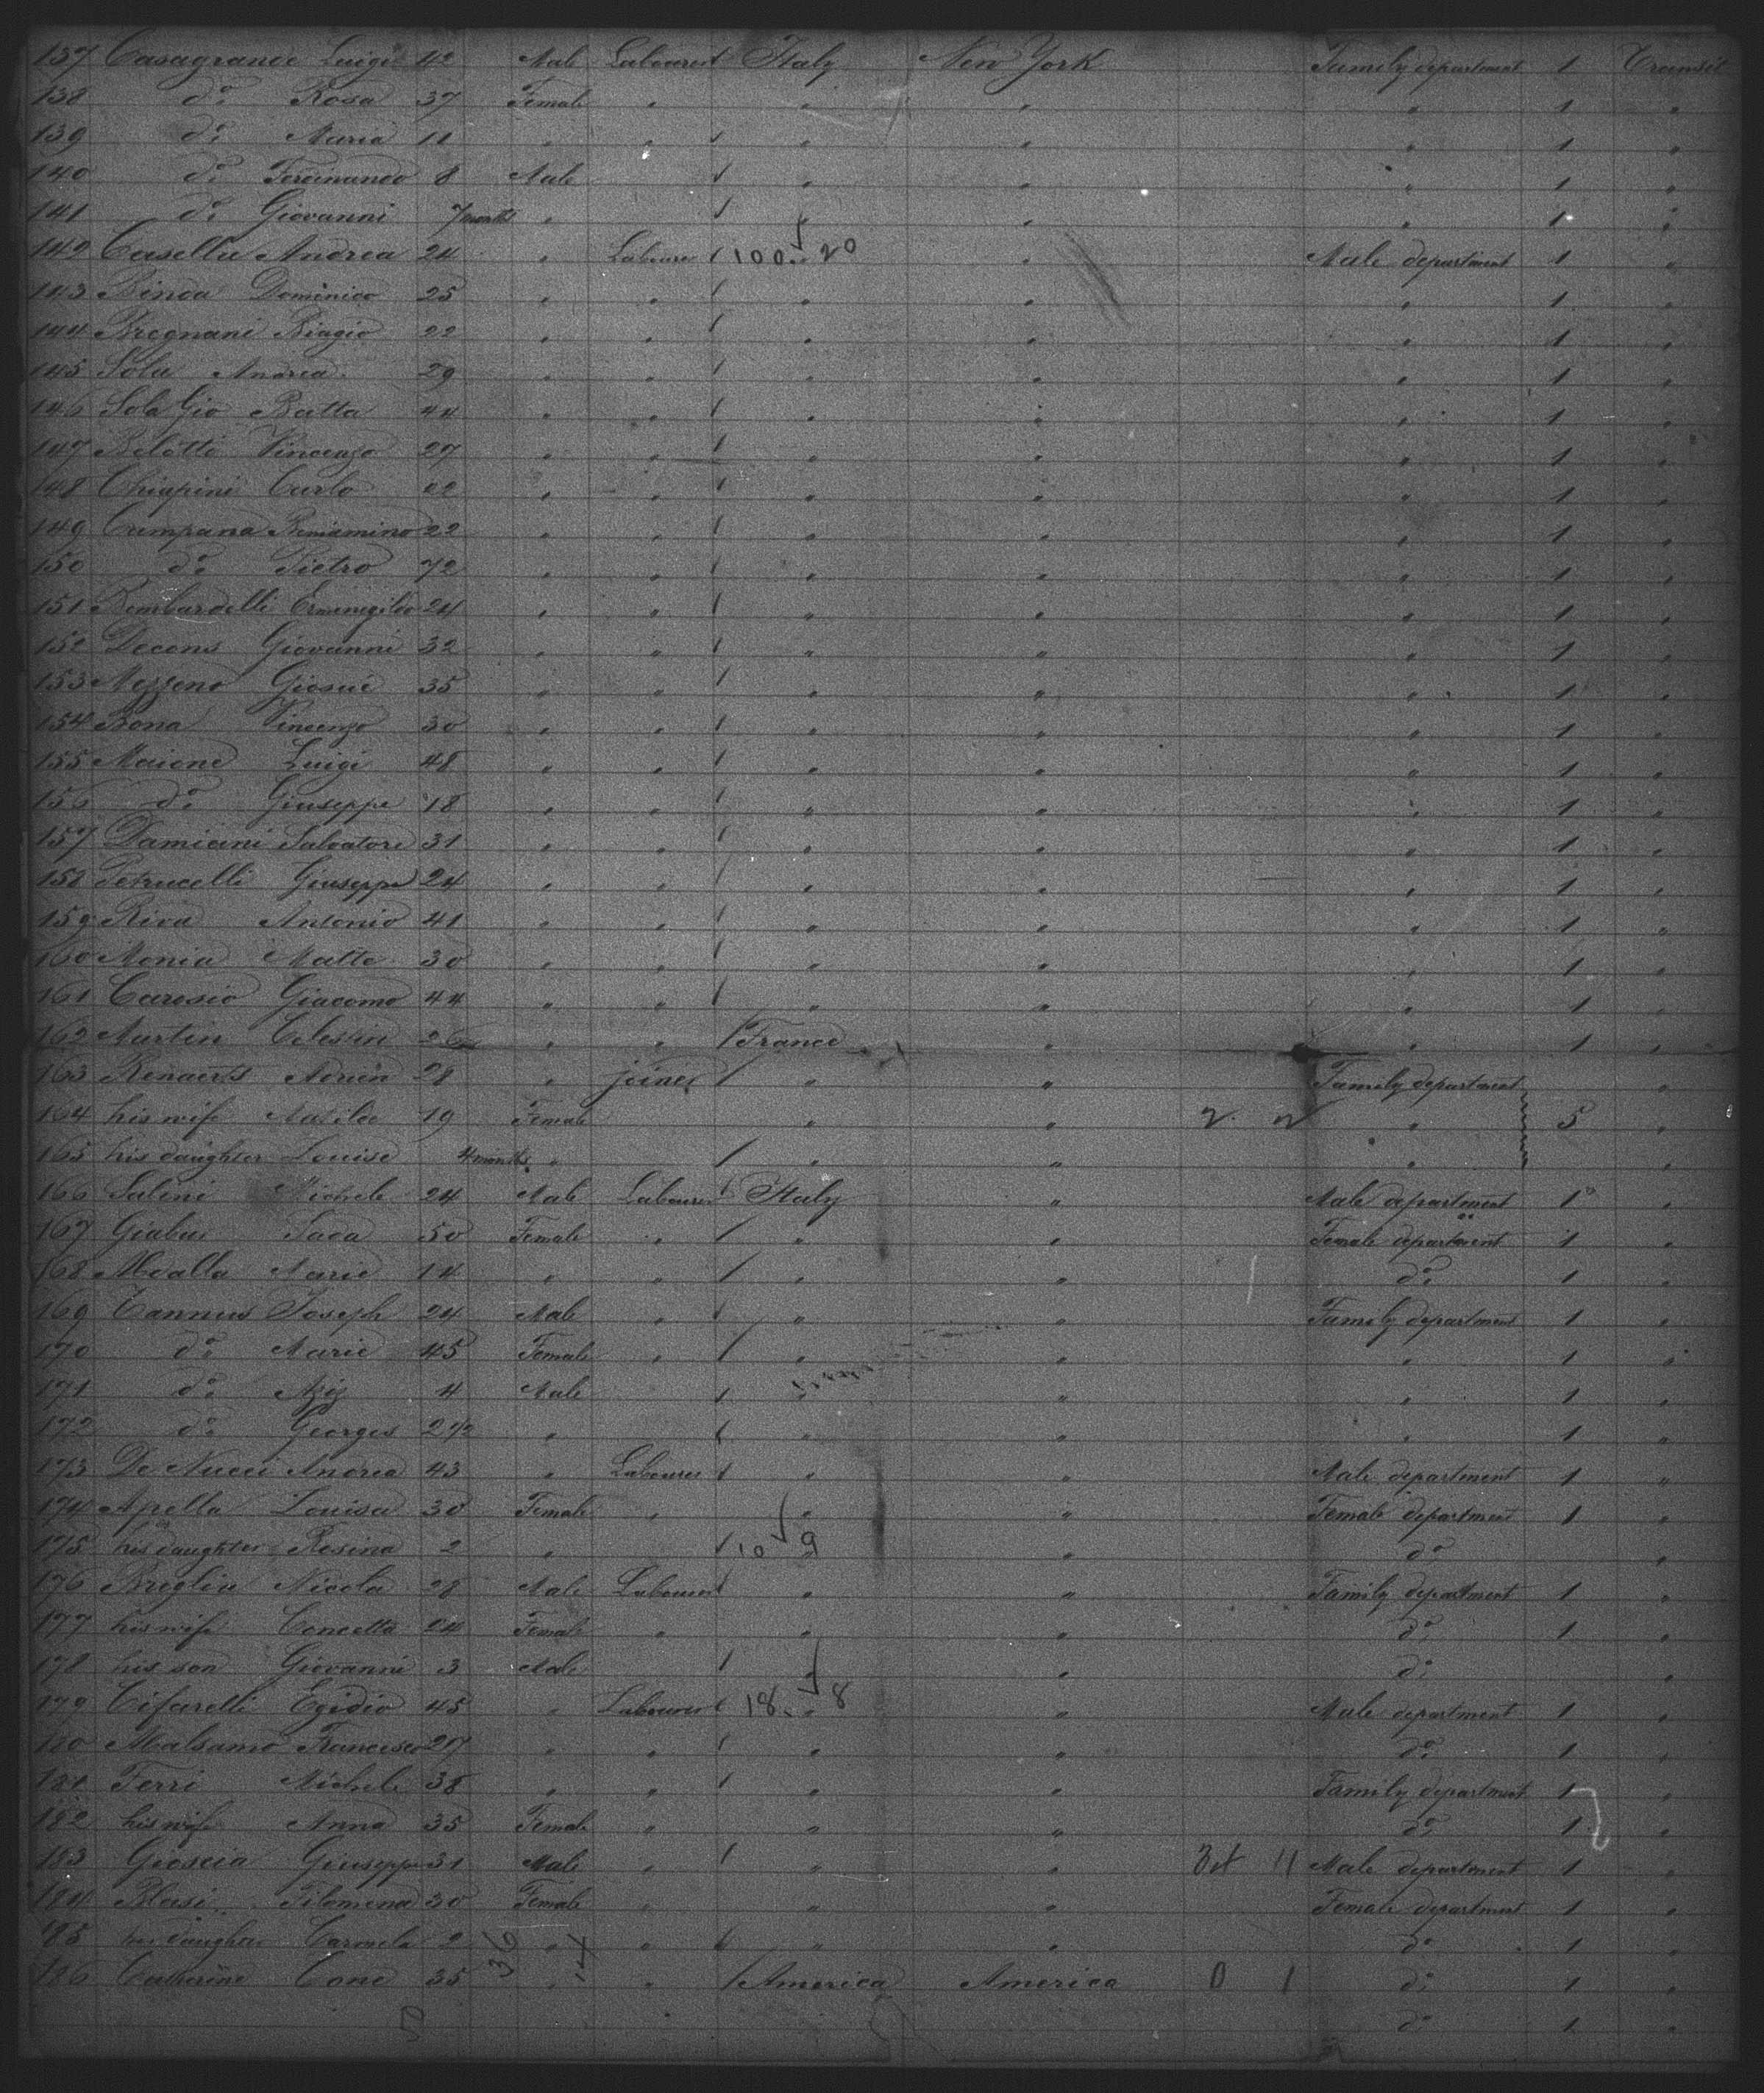 137 Casagrande Luigi 42 Male Labourer Italy New York Family department 1 Transit
138 do Rosa 37 Female " " " " 1 "
139 do Maria 11 " " " " " 1 "
140 do Ferdinando 8 Male " " " 1 "
141 do Giovanni 7 months " " " " 1 "
142 Casella Andrea 24 " Labourer 100 " 20 " Male department 1 "
143 Binda Dominico 25 " " " " " 1 "
144 Bregnani Biagio 22 " " " " " 1 "
145 Sola Andrea 29 " " " " " 1 "
146 Sola Gio Batta 44 " " " " " 1 "
147 Belotti Vincenzo 27 " " " " " 1 "
148 Chiapini Carlo 22 " " " " " 1 "
149 Campana Beniamino 22 " " " " " 1 "
150 do Pietro 72 " " " " " 1 "
151 Bombardelli Ermenegildo 24 " " " " " 1 "
152 Decons Giovanni 32 " " " " " 1 "
153 Mezzeno Giosué 35 " " " " " 1 "
154 Bona Vincenzo 30 " " " " " 1 "
155 Maione Luigi 48 " " " " " 1 "
156 do Giuseppe 18 " " " " " 1 "
157 Damiani Salvatore 31 " " " " " 1 "
158 Petrucelli Giuseppe 24 " " " " " 1 "
159 Riva Antonio 41 " " " " " 1 "
160 Monia Matte 30 " " " " " 1 "
161 Caresio Giacomo 44 " " " " " 1 "
162 Martin Celestin 26 " " France " " 1 "
163 Renaerts Adrien 28 " joiner " " Family department "
164 his wife Matilde 19 Female " " 2 2 " 5 "
165 his daughter Louise 4 months " " " " "
166 Salini Michele 24 Male Labourer Italy " Male department 1 "
167 Giabur Sada 50 Female " " " Female department 1 "
168 Abdalla Marie 14 " " " " do 1 "
169 Tannus Joseph 24 Male " " " Family department 1 "
170 do Marie 45 Female " " " " 1 "
171 do Aziz 4 Male " " " 1 "
172 do Georges 2 1/2 " " " " 1 "
173 De Nucci Andrea 43 " Labourer " " Male department 1 "
174 Apella Louisa 30 Female " " " Female department 1 "
175 his daughter Rosina 2 " 10 " 9 " do "
176 Breglia Nicola 28 Male Labourer " " Family department 1 "
177 his wife Concetta 24 Female " " " do 1 "
178 his son Giovanni 3 Male " " do "
179 Cifarelli Egidio 45 " Labourer 18 " 8 " Male department 1 "
180 Malsamo Francesco 27 " " " " do 1 "
181 Ferri Michele 38 " " " " Family department 1 "
182 his wife Anna 35 Female " " " do 1 "
183 Gioscia Giuseppe 31 Male " " " 11 Male department 1 "
184 Blasi Filomena 30 Female " " Female department 1 "
185 her daughter Carmela 2 " " " " do 1 "
186 Catherine Cone 35 " " America America 0 1 do 1 "
36 14
do 1 "